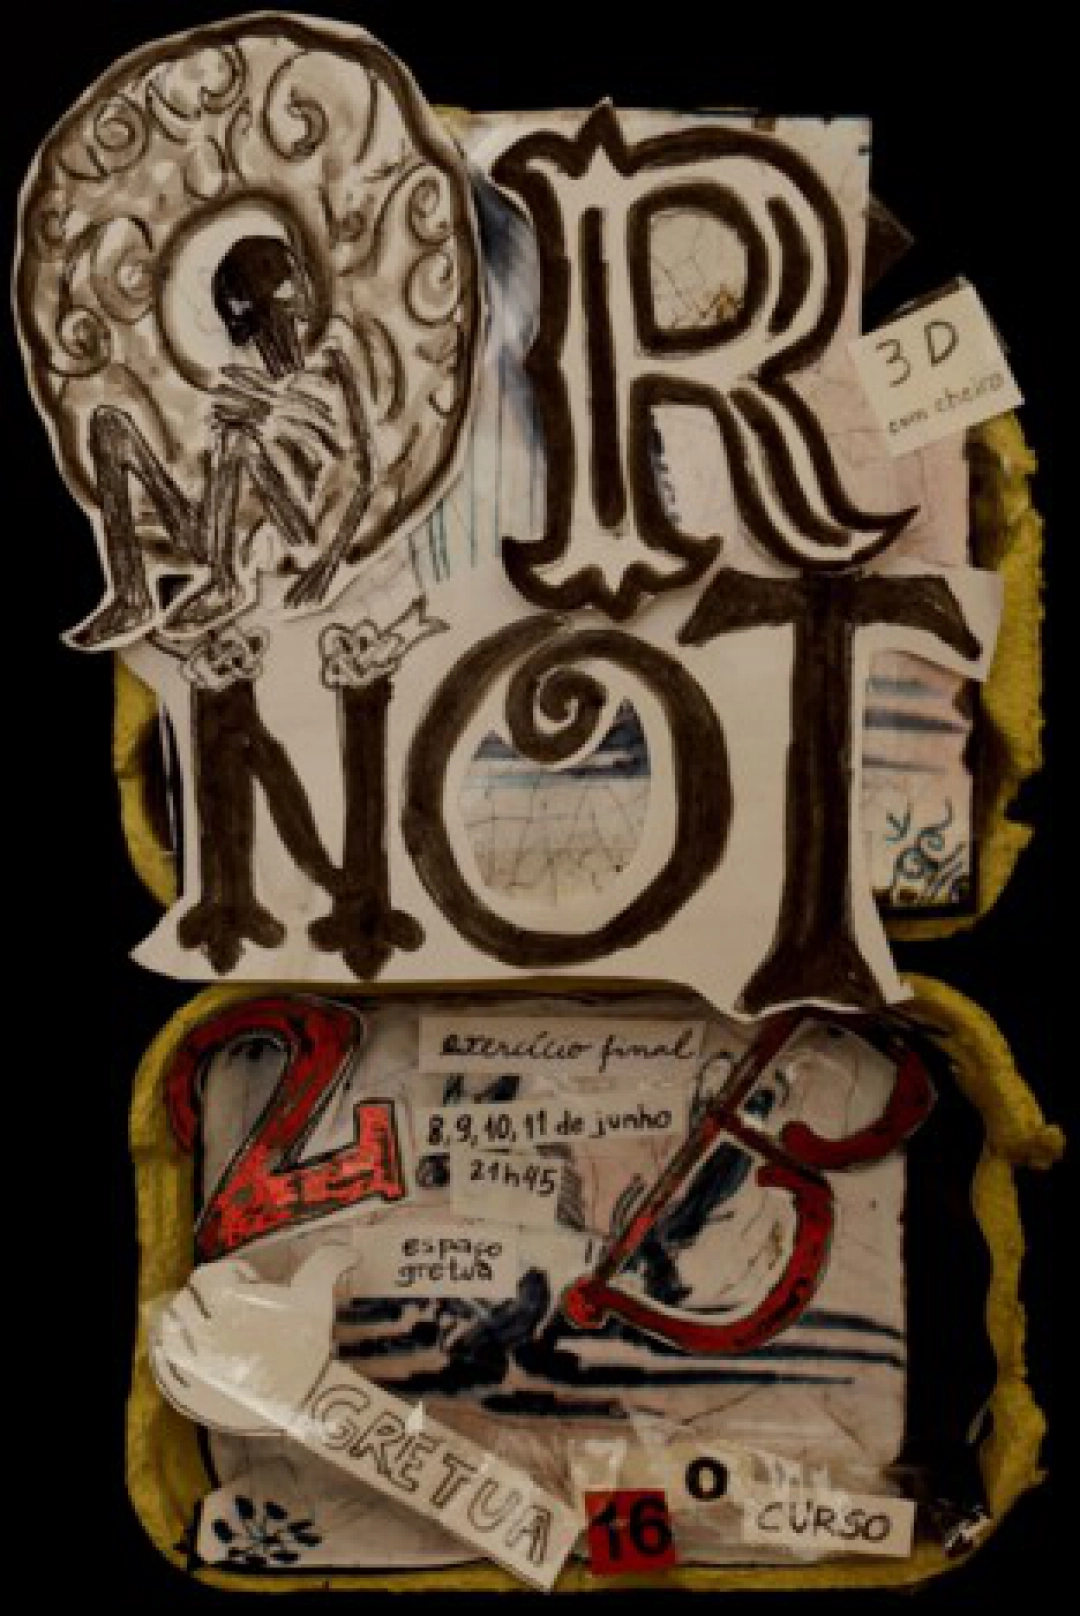 OR
3D
com cheiro
NOT
2 B
exercício final
8, 9, 10, 11 de junho
21h45
espaço
gretua
GRETUA
16 o CURSO